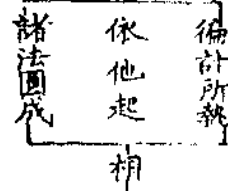 徧計所執
依他起
諸法圓成
相